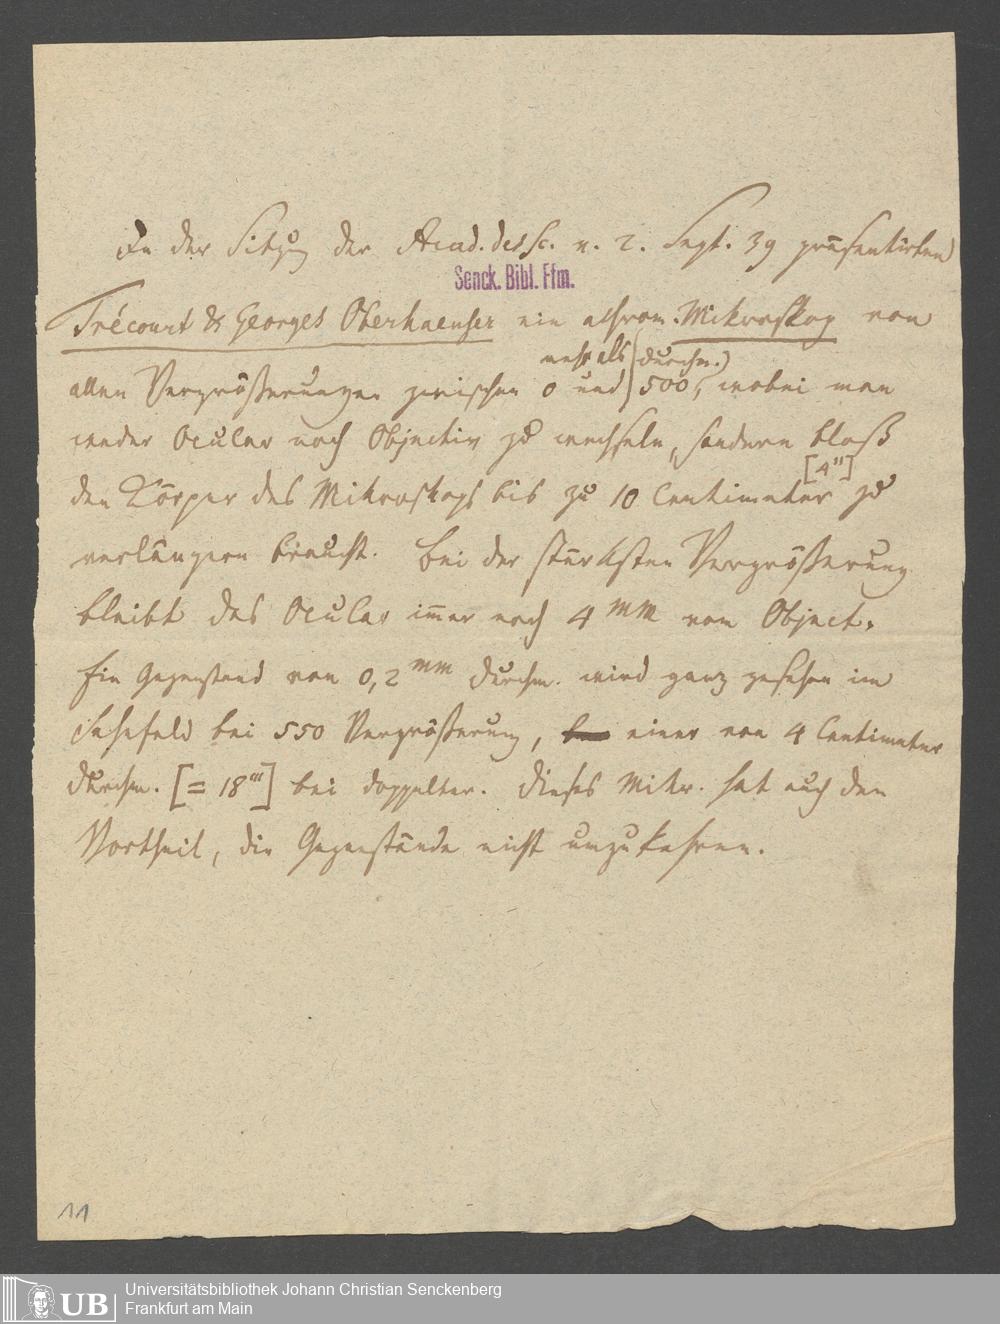 In der Sitzg der Acad. des Sc. v. 2. Sept. 39 präsentirten
Senck. Bibl. Ffm.
Trécourt & Georges Oberhaeuser ein achrom. Mikroskop von
mehr als (durchm.)
allen Vergrößerungen zwischen 0 und 500, wobei man
weder Ocular noch Objectiv zu wechseln, sondern bloß
[4"]
den Körper des Mikroskops bis zu 10 Centimeter zu
verlängern braucht. Bei der stärksten Vergrößerung
bleibt das Ocular immer noch 4 mm vom Object.
Ein Gegenstand von 0,2 mm Durchm. wird ganz gesehen im
Sehefeld bei 550 Vergrößerung, einer von 4 Centimeter
Durchm. [= 18"'] bei doppelter. Dieses Mikr. hat auch den
Vortheil, die Gegenstände nicht umzukehren.
11
UB
Universitätsbibliothek Johann Christian Senckenberg
Frankfurt am Main